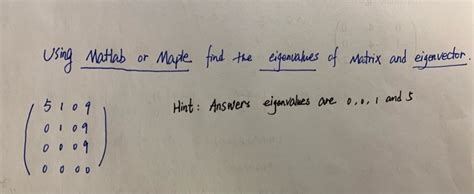 Using Matlab or Maple find the eigenvalues of Matrix and eigenvector.
Hint: Answers eigenvalues are 0, 0, 1 and 5
5 1 0 9
0 1 0 9
0 0 0 9
0 0 0 0